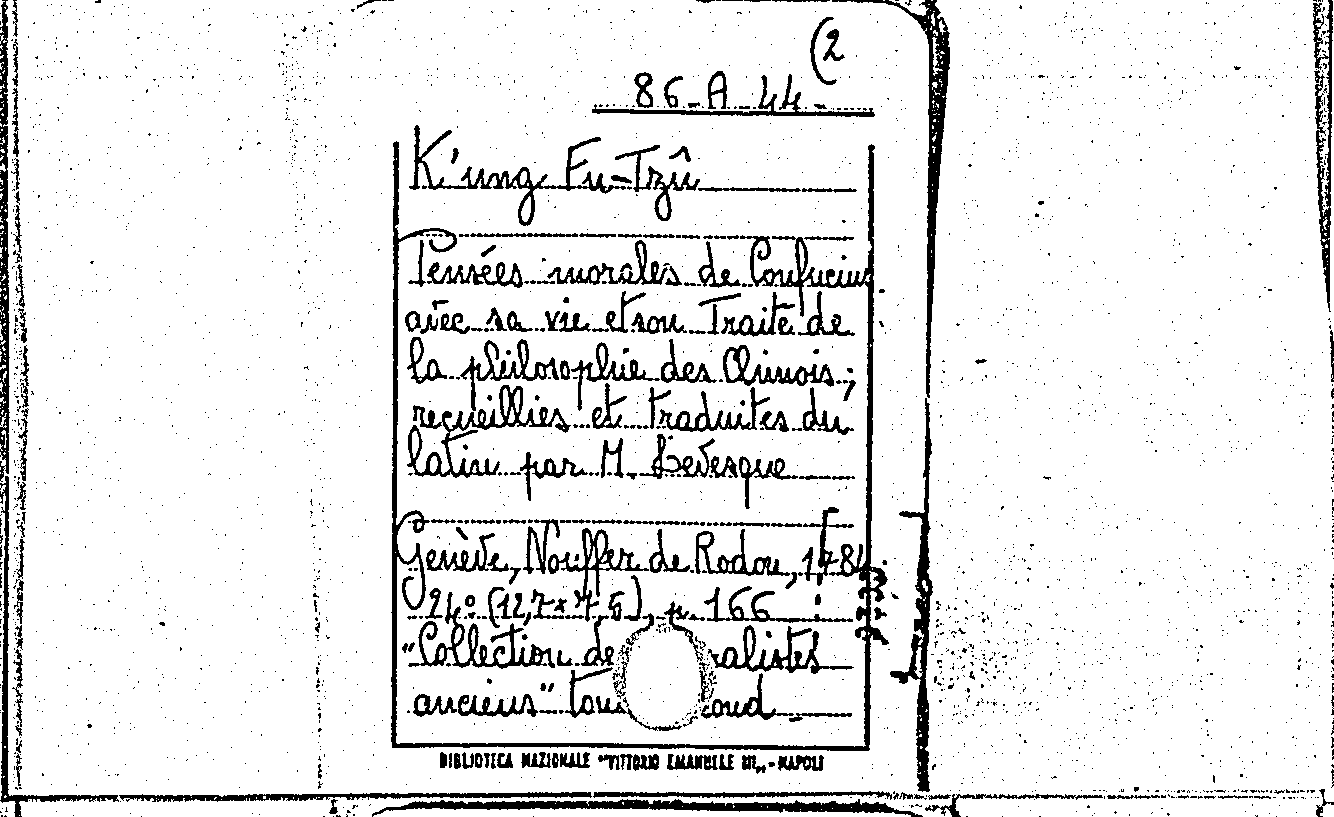 (2
86-A-44-
K'ung Fu-Tzû
Pensées morales de Confucius
avec sa vie et son Traité de
la philosophie des Chinois;
recueillies et traduites du
latin par M. Levesque
Genève, Nouffer de Rodon, 1784
24º (12,7x7,5), p. 166
"Collection de
anciens"
BIBLIOTECA NAZIONALE "VITTORIO EMANUELE III„ - NAPOLI